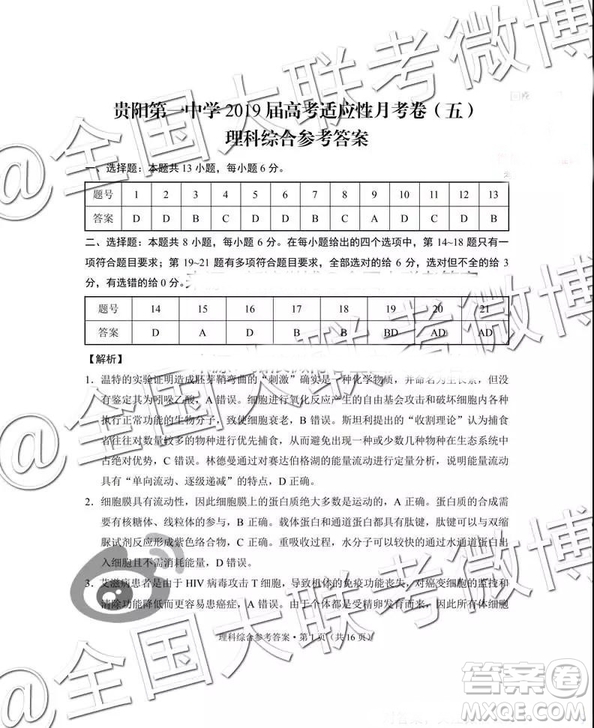 贵阳第一中学 2019 届高考适应性月考卷（五）
理科综合参考答案
一、选择题：本题共 13 小题，每小题 6 分。
题号 1 2 3 4 5 6 7 8 9 10 11 12 13
答案 D D B C D D B C A D C D B
二、选择题：本题共 8 小题，每小题 6 分。在每小题给出的四个选项中，第 14~18 题只有一
项符合题目要求；第 19~21 题有多项符合题目要求，全部选对的给 6 分，选对但不全的给 3
分，有选错的给 0 分。
题号 14 15 16 17 18 19 20 21
答案 D A D B B BD AD AD
【解析】
1．温特的实验证明造成胚芽鞘弯曲的“刺激”确实是一种化学物质，并命名为生长素，但没
有鉴定其为吲哚乙酸，A 错误。细胞通过氧化反应产生的自由基会攻击和破坏细胞内各种
执行正常功能的生物分子，致使细胞衰老，B 错误。斯坦利提出的“收割理论”认为捕食
者往往对数量较多的物种进行优先捕食，从而避免出现一种或少数几种物种在生态系统中
占绝对优势，C 错误。林德曼通过对赛达伯格湖的能量流动进行定量分析，说明能量流动
具有“单向流动、逐级递减”的特点，D 正确。
2．细胞膜具有流动性，因此细胞膜上的蛋白质绝大多数是运动的，A 正确。蛋白质的合成需
要有核糖体、线粒体的参与，B 正确。载体蛋白和通道蛋白都具有肽键，因此可以与双缩
脲试剂反应形成紫色络合物，C 正确。重吸收过程，水分子可以较快的以通道蛋白的方式
进出细胞且不需消耗能量，D 错误。
3．艾滋病患者是由于 HIV 病毒攻击 T 细胞，导致机体的免疫功能丧失，对癌变细胞的监控和
清除功能降低而更容易患癌症，A 正确。个体发育是由于受精卵发育而成，所以体细胞
理科综合参考答案·第 1 页（共 16 页）
@全国大联考微博
@全国大联考微博
@全国大联考微博
答案圈